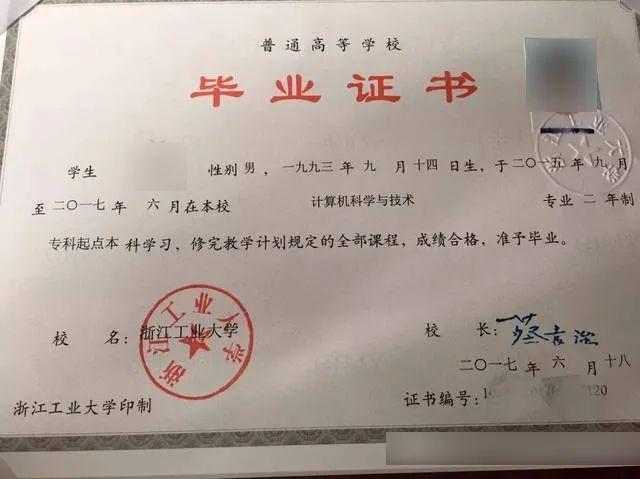 普通高等学校
毕业证书
学生 性别 男，一九九三年 九 月 十四 日生，于二〇一五年 九 月
至二〇一七年 六 月在本校 计算机科学与技术 专业 二 年制
专科起点本 科学习，修完教学计划规定的全部课程，成绩合格，准予毕业。
校 名：浙江工业大学
浙江工业大学
校 长：
二〇一七年 六 月 十八
浙江工业大学印制
证书编号：
120